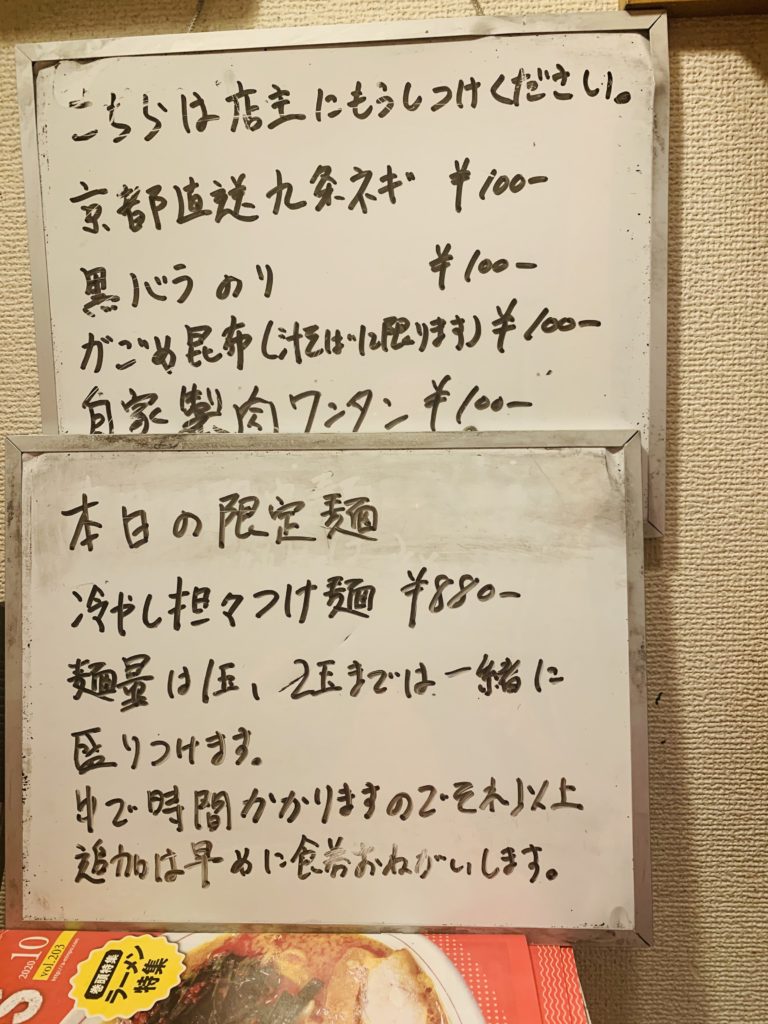 こちらは店主にもうしつけください。
京都直送九条ネギ ¥100-
黒バラのり ¥100-
がごめ昆布(汁そばに限ります)¥100-
自家製肉ワンタン ¥100-
本日の限定麺
冷やし担々つけ麺 ¥880-
麺量は1玉、2玉までは一緒に
盛りつけます。
ゆで時間かかりますのでそれ以上
追加は早めに食券おねがいします。
2020.10
vol.203
巻頭特集
ラーメン
特集